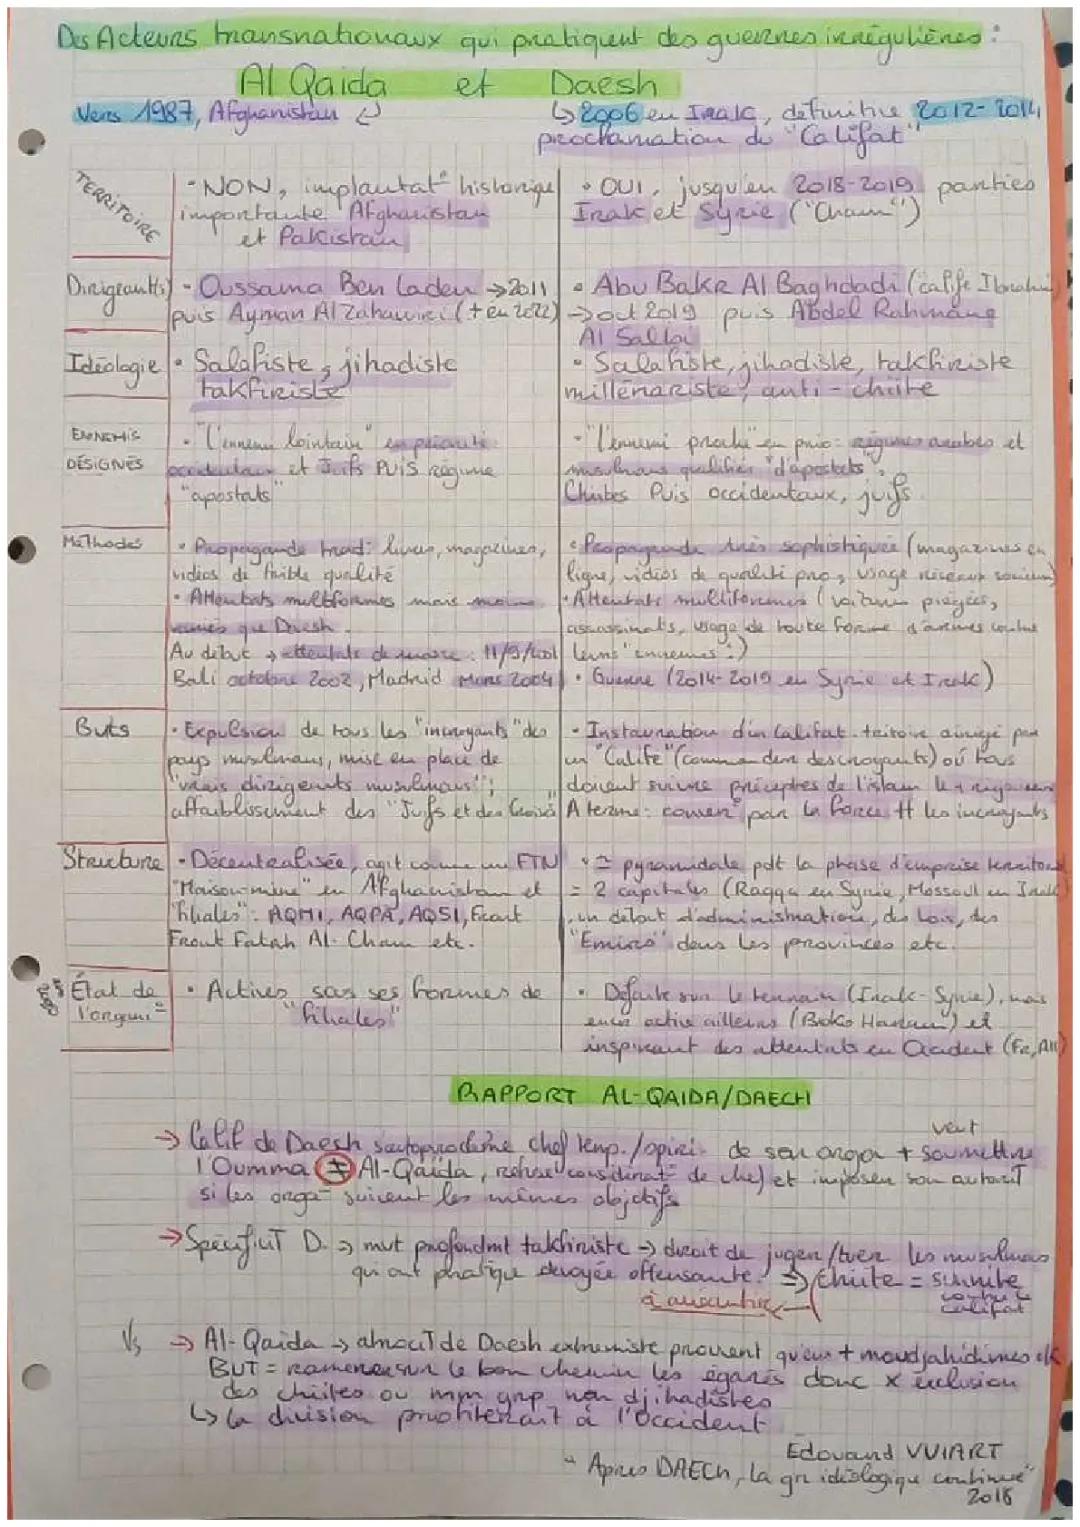 Des Acteurs transnationaux qui pratiquent des guerres irrégulières :
Al Qaida et Daesh
Vers 1987, Afghanistan
↳ 2006 en Irak, définitive 2012-2014,
proclamation du "Califat"
TERRITOIRE
• NON, implantat° historique
importante Afghanistan
et Pakistan
• OUI, jusqu'en 2018-2019 parties
Irak et Syrie ("Cham")
Dirigeant(s)
• Oussama Ben Laden → 2011
puis Ayman Al Zahawiri (+ en 2022)
• Abu Bakr Al Baghdadi (calife Ibrahim)
→ oct 2019 puis Abdel Rahmane
Al Salbi
Idéologie
• Salafiste, jihadiste
takfiriste
• Salafiste, jihadiste, takfiriste
millénariste, anti-chiite
ENNEMIS
DÉSIGNÉS
• "l'ennemi lointain" en priorité :
occidentaux et Juifs PUIS régime
"apostats"
• "l'ennemi proche" en prio : régimes arabes et
musulmans qualifiés "d'apostats",
Chiites Puis occidentaux, juifs
Méthodes
• Propagande trad : livres, magazines,
vidéos de faible qualité
• Attentats multiformes mais moins
variés que Daesh
Au début → attentats de masse : 11/9/2001
Bali octobre 2002, Madrid Mars 2004
• Propagande très sophistiquée (magazines en
ligne, vidéos de qualité pro, usage réseaux sociaux)
• Attentats multiformes (voitures piégées,
assassinats, usage de toute forme d'armes contre
leurs "ennemis")
• Guerre (2014-2019 en Syrie et Irak)
Buts
• Expulsion de tous les "incroyants" des
pays musulmans, mise en place de
"vrais dirigeants musulmans" ;
affaiblissement des "Juifs et des Croisés"
• Instauration d'un Califat : territoire dirigé par
un "Calife" (commandeur des croyants) où tous
doivent suivre préceptes de l'islam le + rigoureux
A terme : conver° par la force tt les incroyants
Structure
• Décentralisée, agit comme une FTN
"Maison-mère" en Afghanistan et
"filiales" : AQMI, AQPA, AQSI,
Front Fatah Al-Cham etc.
• ≃ pyramidale pdt la phase d'emprise territoriale
= 2 capitales (Raqqa en Syrie, Mossoul en Irak)
, un début d'administration, des lois, des
"Emirs" dans les provinces etc.
État de
l'organi°
• Actives sous ses formes de
"filiales"
• Défaite sur le terrain (Irak-Syrie), mais
encore active ailleurs (Boko Haram) et
inspirant des attentats en Occident (Fr, All)
RAPPORT AL-QAIDA/DAECH
→ Calif de Daesh s'autoproclame chef temp./spiri. de son orga + veut soumettre
l'Oumma ≠ Al-Qaïda, refuse considérat° de chef et imposer son autorité
si les orga° suivent les mêmes objectifs
→ Spécificité D. → mvt profondmt takfiriste → droit de juger/tuer les musulmans
qui ont pratique dévoyée offensante. => chiite = sunnite
contre le
califat
Vs → Al-Qaida → atrocité de Daesh extrémiste prouvent qu'eux + moudjahidines ok
BUT = ramener sur le bon chemin les égarés donc x exclusion
des chiites ou mm grp non djihadistes
↳ la division profiterait à l'Occident
Edouard VUIART
"Après DAECH, la gr idéologique continue"
2018